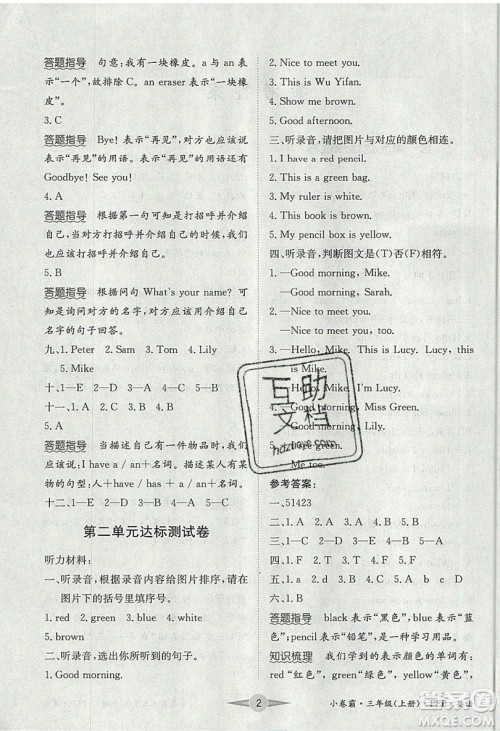 答题指导 句意：我有一块橡皮。a 与 an 表
示“一个”，故排除 C。an eraser 表示“一块橡
皮”。
3. C
答题指导 Bye! 表示“再见”，对方也应该说
表示“再见”的用语。表示“再见”的用语还有
Goodbye! See you!
4. A
答题指导 根据第一句可知是打招呼并介绍
自己，当对方与你打招呼并介绍自己的时候，
你也应该与对方打招呼并介绍自己。
5. B
答题指导 根据问句 What's your name? 可
知是询问对方的名字，应该选择介绍自己名
字的句子回答。
九、1. Peter 2. Sam 3. Tom 4. Lily
5. Mike
十、1—E 2—D 3—A 4—B 5—C
十一、1. C 2. A 3. B 4. B
5. A
答题指导 当描述自己有一件物品时，我们
应该说：I have a / an+名词。描述某人有某
物的句型：人＋have / has＋a / an＋名词。
十二、1—C 2—A 3—E 4—B 5—D
第二单元达标测试卷
听力材料：
一、听录音，根据录音内容给图片排序，请在
图片下的括号里填序号。
1. red 2. green 3. blue 4. white
5. brown
二、听录音，选出你所听到的句子。
1. Good morning.
2. Nice to meet you.
3. This is Wu Yifan.
4. Show me brown.
5. Good afternoon.
三、听录音，请把图片与对应的颜色相连。
1. I have a red pencil.
2. This is a green bag.
3. My ruler is white.
4. I have a brown head.
5. My pencil box is yellow.
四、听录音，判断图文是(T)否(F)相符。
1. —Good morning, Mike.
—Good morning, Sarah.
2. —Nice to meet you.
—Nice to meet you, too.
3. —Hello, Mike. This is Lucy. Lucy, this
is Mike.
—Hello, Mike. I'm Lucy.
4. —Good morning, Miss Green.
—Good
5. green.
—Me too.
参考答案：
一、51423
二、1. B 2. A 3. A 4. B 5. A
三、1—C 2—D 3—E 4—B 5—A
四、1. F 2. T 3. F 4. T 5. T
五、1. d 2. a 3. b 4. f 5. e
六、1. B 2. A
答题指导 black 表示“黑色”，blue 表示“蓝
色”；pencil 表示“铅笔”，是一种学习用品。
知识梳理 我们学过的表示颜色的词还有：
互助文档
hdzuoye.com
2
小卷霸·三年级(上册)